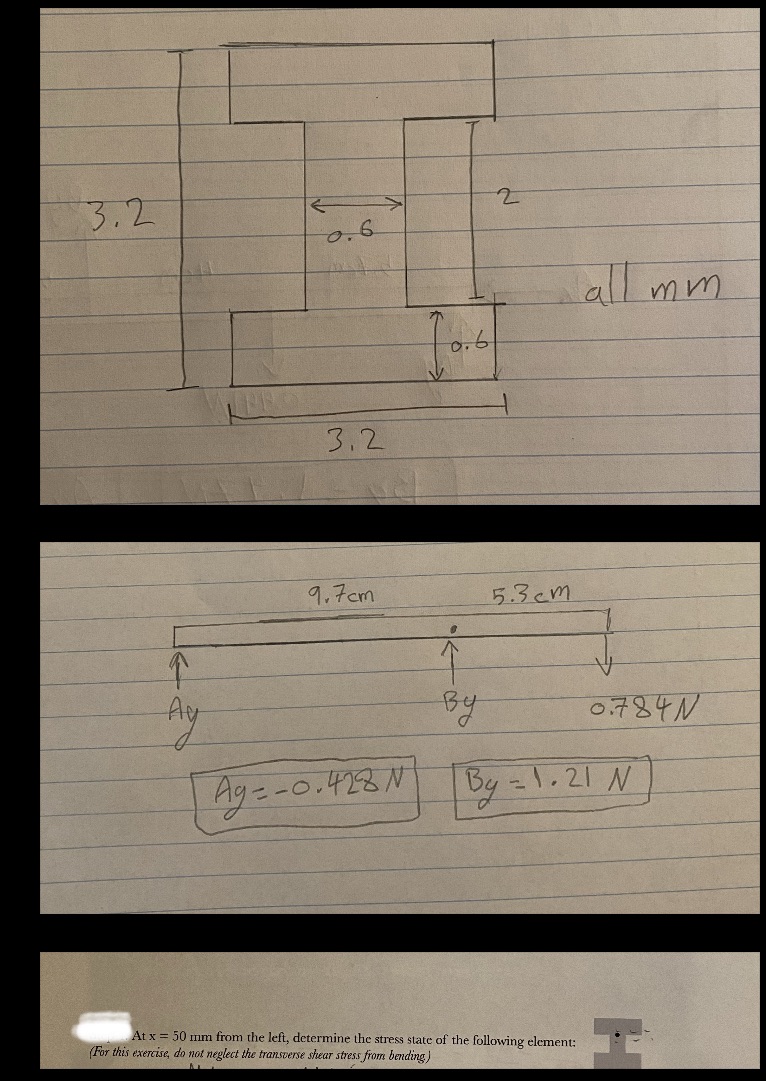 3.2
0.6
2
all mm
0.6
3.2
9.7cm 5.3cm
Ay By 0.784N
Ay=-0.428N By=1.21 N
At x = 50 mm from the left, determine the stress state of the following element:
(For this exercise, do not neglect the transverse shear stress from bending.)